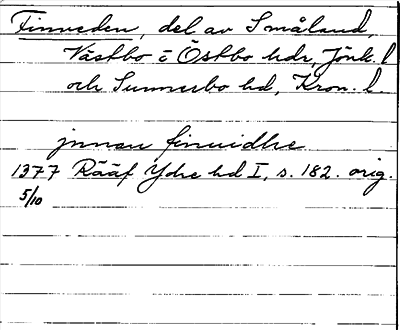 Finveden, del av Småland,
Västbo o Östbo hdr, Jönk. l
och Sunnerbo hd, Kron. l.
jnnan finuidhe
1377 Rääf Ydre hd I, s. 182. orig.
5/10